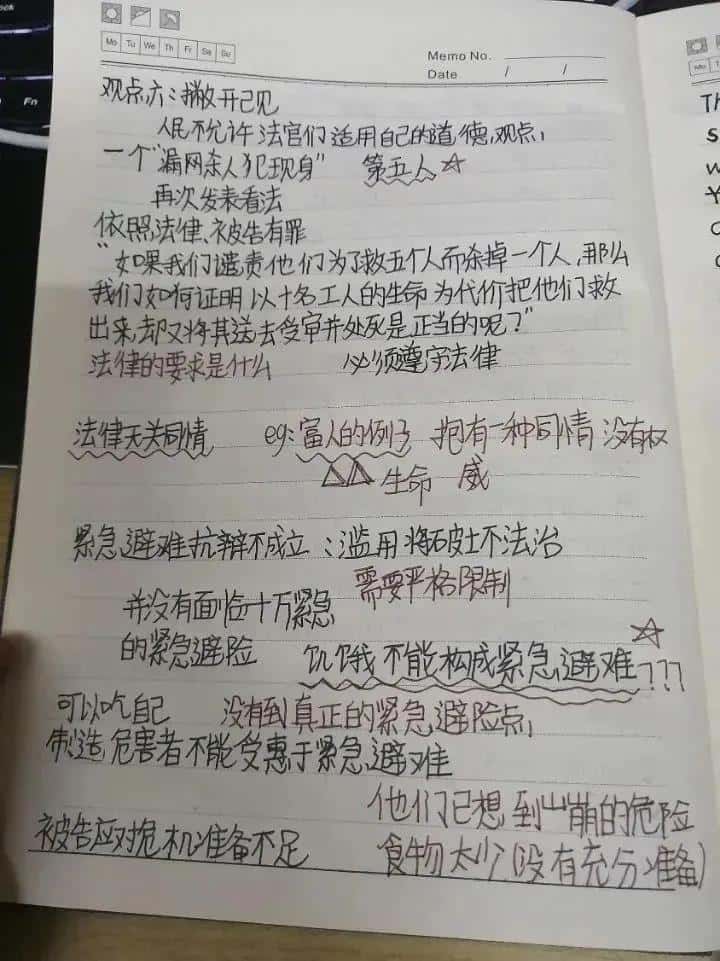 Mo Tu We Th Fr Sa Su
Memo No.
Date / /
观点六：撇开己见
人民不允许法官们适用自己的道德观点，
一个"漏网杀人犯现身" 第五人☆
再次发表看法
依照法律、被告有罪
"如果我们谴责他们为了救五个人而杀掉一个人，那么
我们如何证明以十名工人的生命为代价把他们救
出来，却又将其送去受审并处死是正当的呢？"
法律的要求是什么 必须遵守法律
法律无关同情 eg：富人的例子 抱有一种同情 没有权
△△ 生命 威
紧急避难抗辩不成立：滥用将破坏法治
需要严格限制
并没有面临十万紧急
的紧急避险 饥饿不能构成紧急避难???
☆
可以吃自己 没有到真正的紧急避险点，
制造危害者不能受惠于紧急避难
他们已想到山崩的危险
被告应对危机准备不足 食物太少（没有充分准备）
Fn